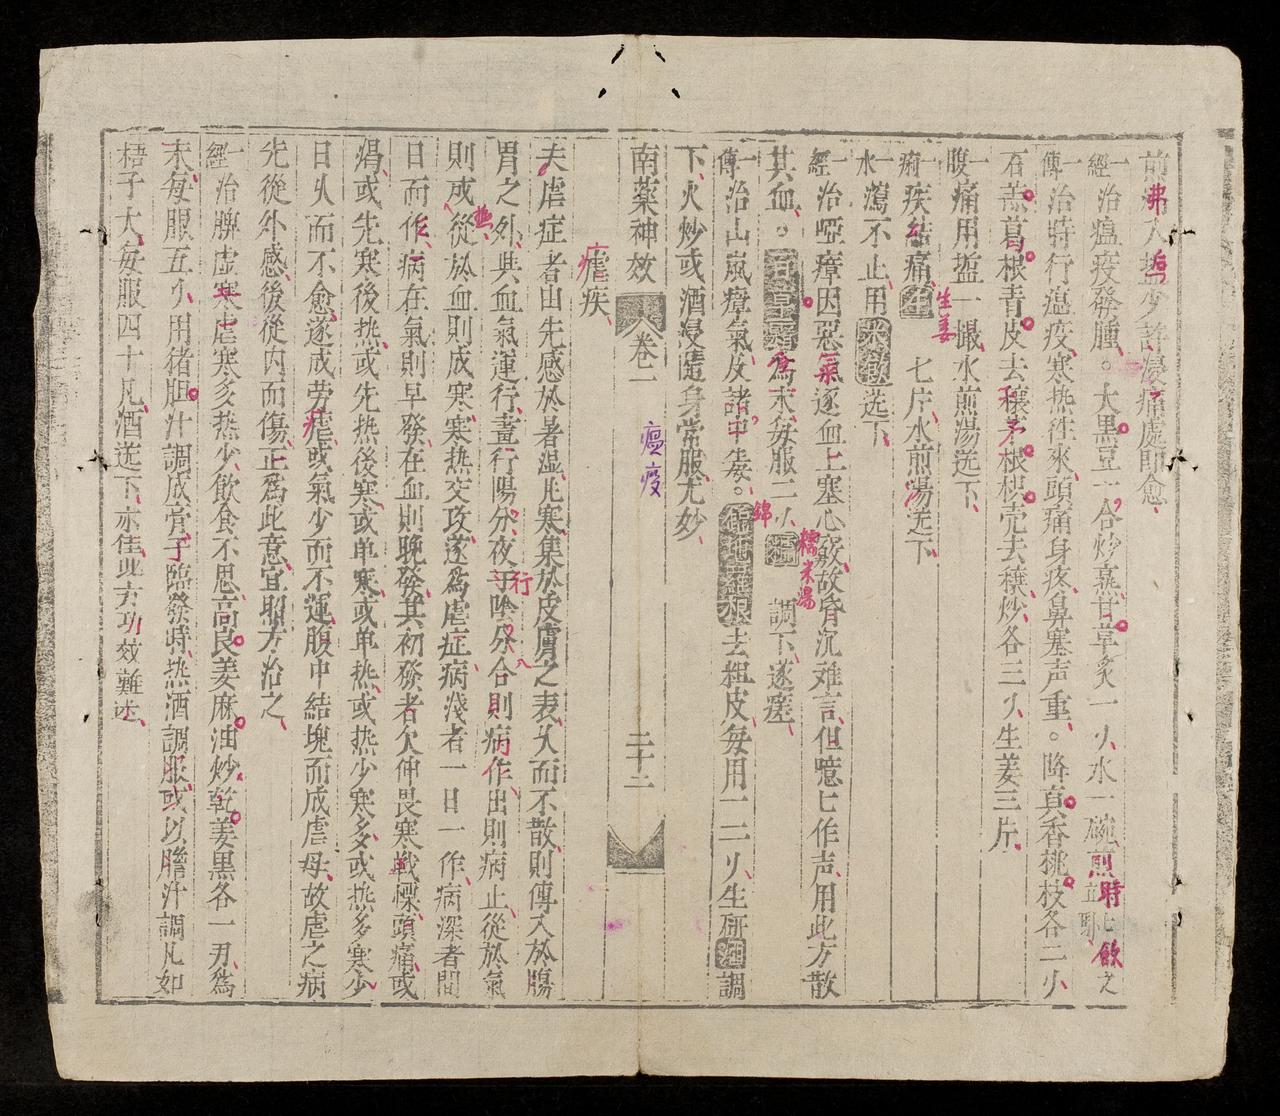 前湯入塩少許浸痛處即愈
一經治瘟疫發腫。大黑豆一合炒熹甘草炙一刄水一碗煎時時飲之
一傳治時行瘟疫寒热徃來頭痛身疼鼻塞声重。降真香桃枝各二刄
石羔葛根青皮去穰茅根枳壳去穰炒各三刄生姜三片
一腹痛用塩一撮水煎湯送下
一痢疾結痛生姜七片水煎湯送下
一水瀉不止用米飲送下
一經治啞瘴因惡氣逐血上塞心竅故昏沉难言但噫匕作声用此方散
其血。百草霜為末每服二刄糯米湯調下遂瘥
一傳治山嵐瘴氣及諸中毒。錦地羅根去粗皮每用一二刄生研酒調
下火炒或酒浸隨身常服尤妙
南藥神效 卷二 瘟疫 二十二
瘧疾
夫虐症者由先感於暑湿凡寒集於皮膚之表久而不散則傳入於腸
胃之外與血氣運行晝行陽分夜行陰分合則病作出則病止從於氣
則成热從於血則成寒寒热交攻遂為虐症病淺者一日一作病深者間
日而作病在氣則早發在血則晚發其初發者欠伸畏寒戰慄頭痛或
渴或先寒後热或先热後寒或单寒或单热或热少寒多或热多寒少
日久而不愈遂成劳瘧或氣少而不運腹中結塊而成虐母故虐之病
先從外感後從内而傷正為此意宜照方治之
一經治脾虚寒虐寒多热少飲食不思高良姜麻油炒乾姜黑各一刄為
末每服五刄用猪胆汁調成膏子臨發時热酒調服或以膽汁調凡如
梧子大每服四十凡酒送下亦佳此方功效難述